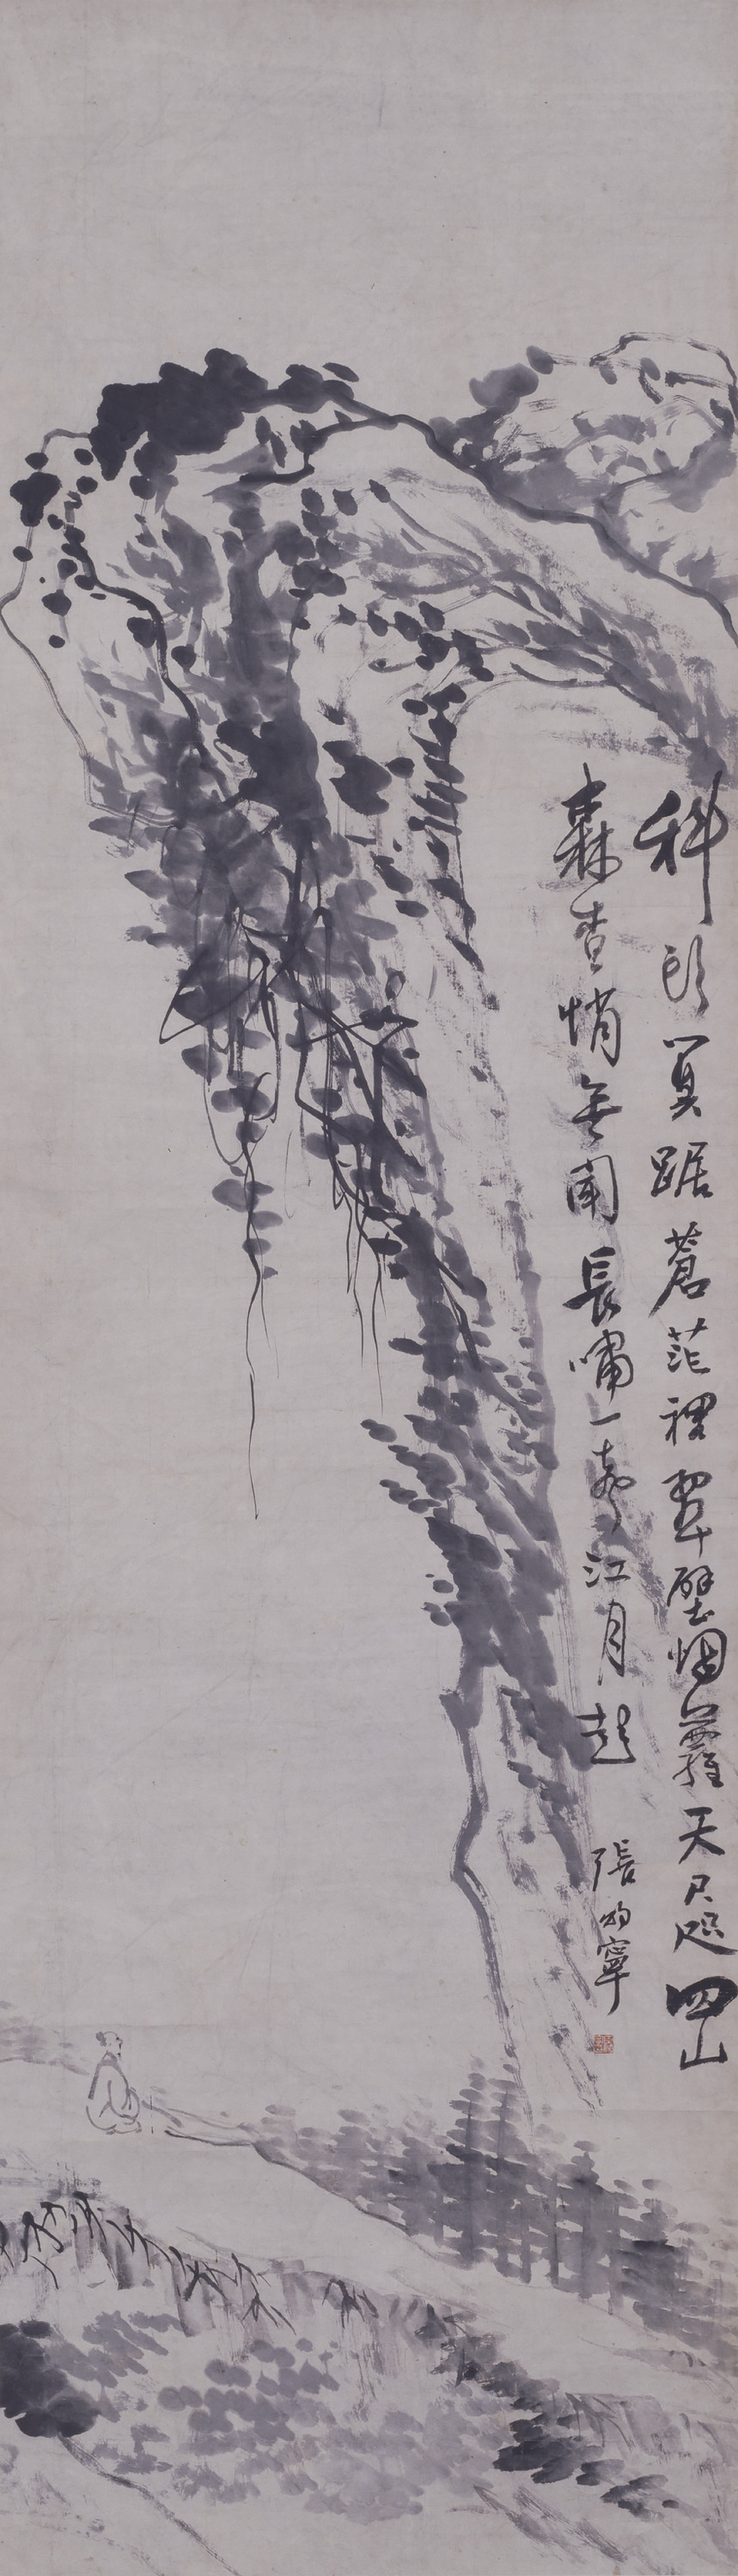 科頭箕踞蒼茫裡翠壁烟蘿天尺咫四山
森杳悄無聞長嘯一聲江月起
張向寧